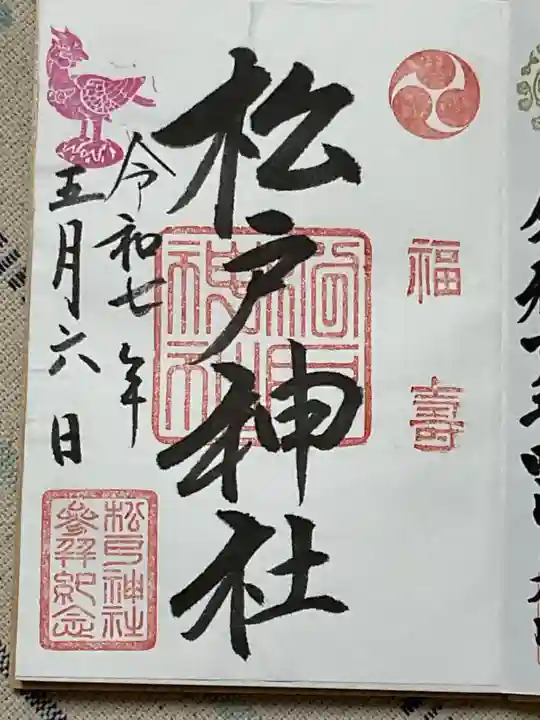 福壽
松戸神社
令和七年
五月六日
松戸神社
参拝紀念